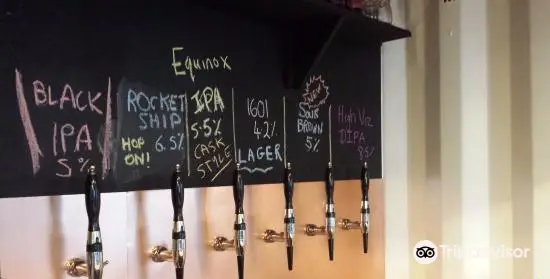 BLACK
IPA
5%
ROCKET
SHIP
HOP
ON!
6.5%
Equinox
IPA
5.5%
CASK
STYLE
1601
4.2%
LAGER
NEW
SOUR
BROWN
5%
High Viz
DIPA
8.5%
Tripadvisor